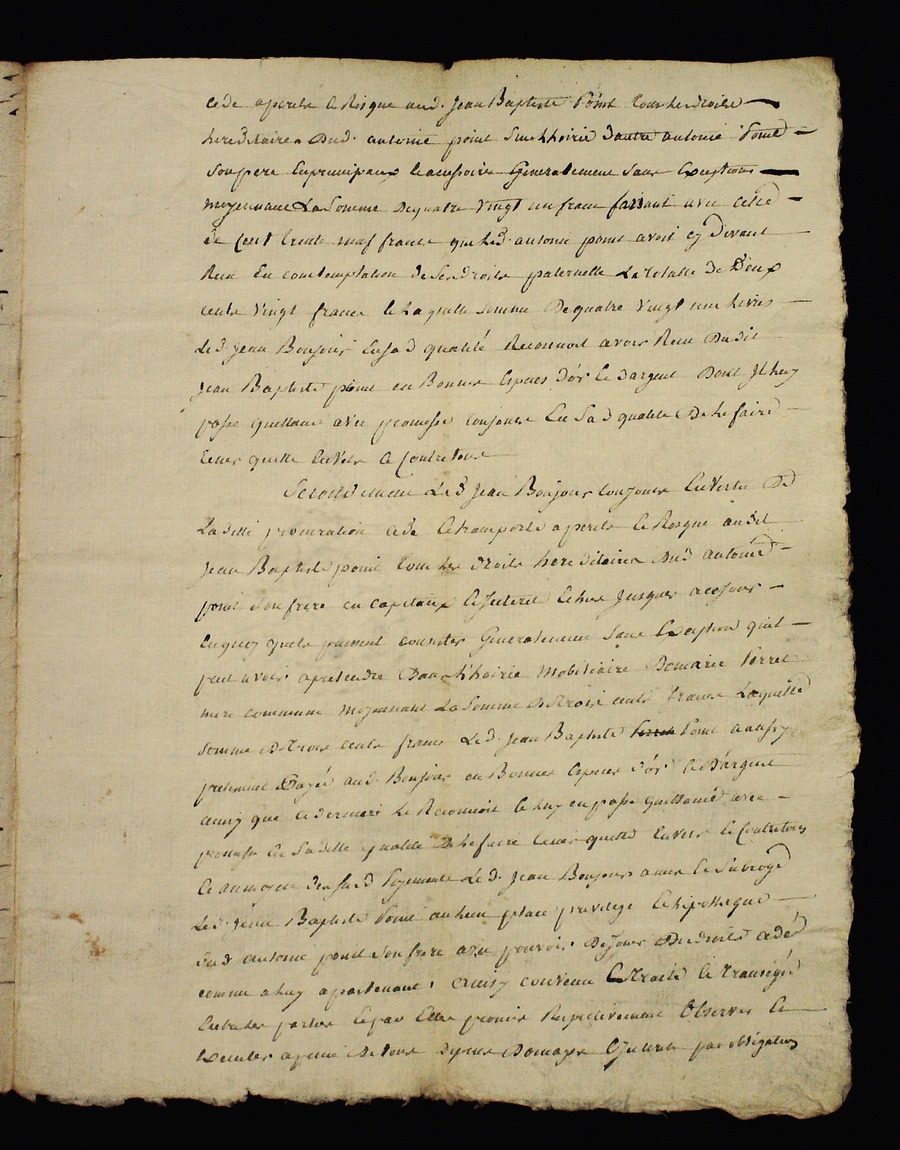 cede a perils et Risque aud. Jean Baptiste Point tous les droits
hereditaires dud. antoine point sur l'hoirie d'autre antoine Point
Son pere En principaux et acessoires Generalement Sans Exception
moyennant La Somme de quatre vingt un franc faisant avec celle
de Cent trente neuf francs que led. antoine point avoit cy devant
Reçu En contemptation de Ses droits paternelle La totalle de Deux
cents vingt francs et Laquelle Somme de quatre vingt une Livres
Led. Jean Boujour En Sad qualité Reconnoit avoir Reçu Dudit
Jean Baptiste point en Bonnes Espèces d'or et d'argent Dont Il Luy
passe quittance avec promesse toujours En Sad qualité De Le faire
tenir quitte Envers et Contre tous
Secondement Led Jean Boujour toujours En Vertu De
Laditte procuration cede et transporte a perils et Risque audit
Jean Baptiste point tous les droits hereditaires dud antoine
point Son frere en Capitaux et Interet Echus Jusques a ce jour
En quoy quils puissent consister Generalement Sans Exception quil
peut avoir a pretendre Dans L'hoirie Mobiliaire De marie
mere commune moyennant La Somme De trois cents francs Laquelle
Somme De trois cents francs Led. Jean Baptiste Point a aussy
presentement Payée aud. Boujour en Bonnes Espèces d'or et d'argent
ainsy que ce dernier Le Reconnoit et Luy en passe quittance avec
promesse En Saditte qualité De Le faire tenir quitte Envers et Contre tous
Et au moyen desusd Payements Led. Jean Boujour a mis et Subrogé
Led. Jean Baptiste Point au Lieu place privilege et hipotheque
dud antoine point Son frere avec pouvoir De Jouir Des droits cedés
comme a Luy apartenant, Ainsy convenu Et traité et transigé
Entre les parties et par Elles promis Respectivement Observer et
Executer a peine De tous Depens Domages Interets par obligation